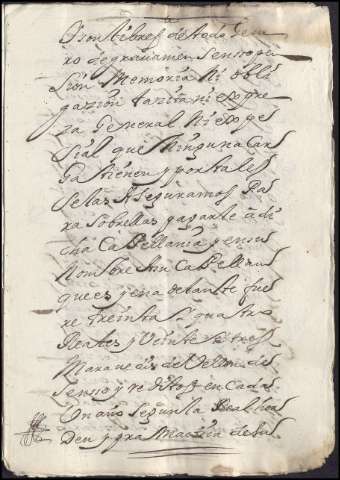 q son libres de todo Gene
ro de grauamen senso pen
sion Memoria Ni obli
gazion tazita ni expre
sa General Ni espe
sial que Ninguna Car
ga tienen y por tales
se las Aseguramos Pa
ra sobre ellas pagarle a di
cha Capellania y en su
Nombre A su Capellan
que es y en adelante fue
re treinta y quatro
Reales y Veinte y tres
Marauedis de Vellon de
Senso y redito en cada
Un año segun la Real hor
den y pragmatica de su